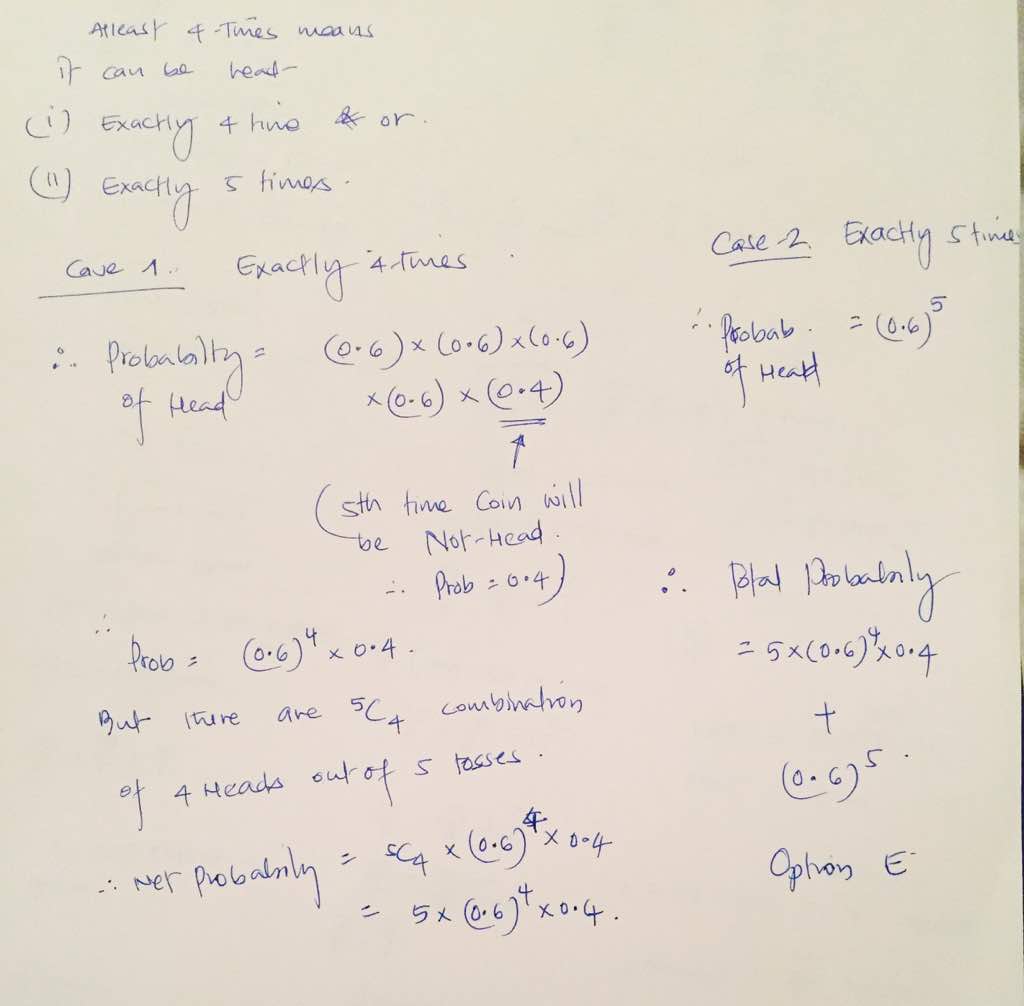 Atleast 4-Times means
it can be head
(i) Exactly 4 time & or.
(ii) Exactly 5 times.
Case 1.. Exactly 4 times.
∴ Probability = (0.6) x (0.6) x (0.6)
of Head x (0.6) x (0.4)
(5th time Coin will
be Not-Head.
∴ Prob = 0.4)
∴ Prob = (0.6)⁴ x 0.4.
But there are ⁵C₄ combination
of 4 Heads out of 5 tosses.
∴ Net Probability = ⁵C₄ x (0.6)⁴ x 0.4
= 5 x (0.6)⁴ x 0.4.
Case 2. Exactly 5 time
∴ Probab. = (0.6)⁵
of Head
∴ Total Probability
= 5x(0.6)⁴x0.4
+
(0.6)⁵.
Option E